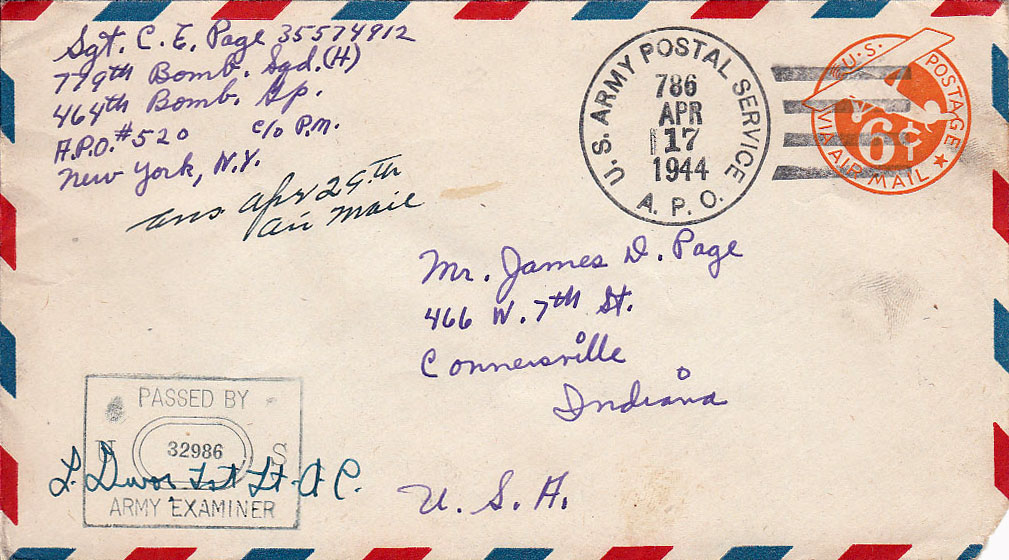 Sgt. C. E. Page 35574912
779th Bomb. Sqd. (H)
464th Bomb. Gp.
A.P.O. #520 c/o P.M.
New York, N.Y.
ans Apr 29th
air mail
U.S. ARMY POSTAL SERVICE
A. P. O.
786
APR
17
1944
U.S. POSTAGE
6¢
VIA AIR MAIL
Mr. James D. Page
466 W. 7th St.
Connersville
Indiana
U. S. A.
PASSED BY
U 32986 S
L. 1st Lt. A C.
ARMY EXAMINER